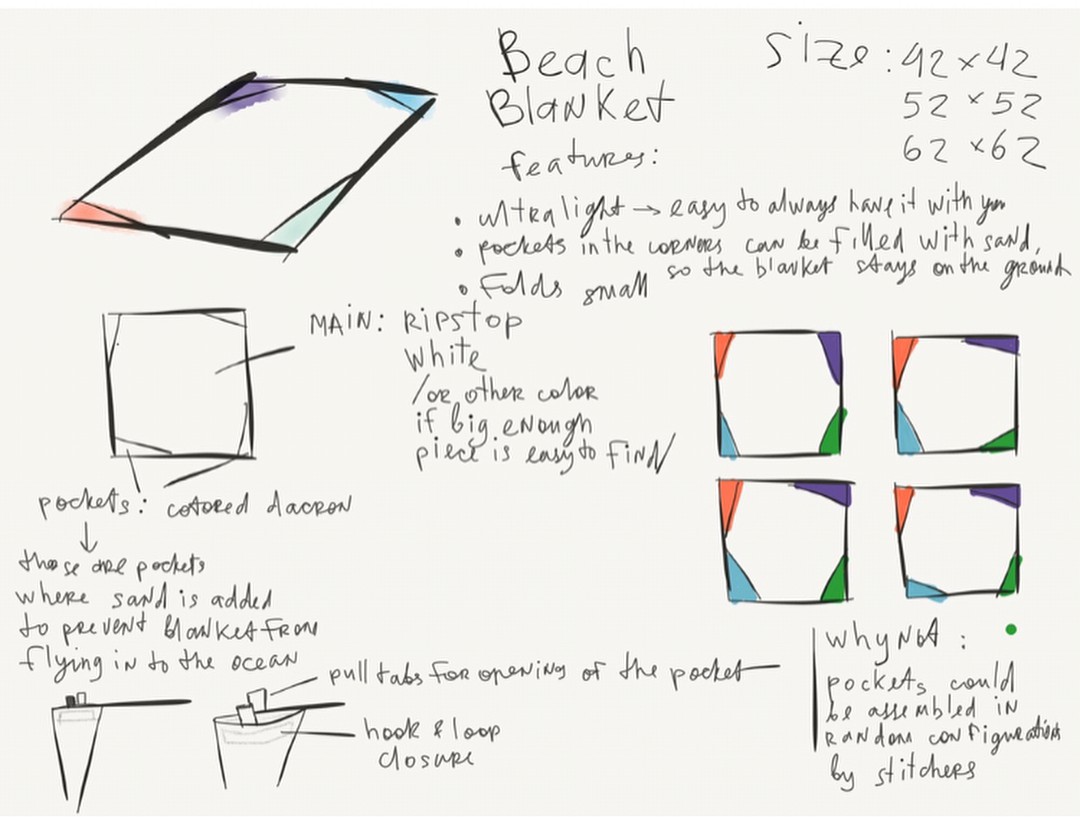 Beach
Blanket
Size: 42 x 42
52 x 52
62 x 62
features:
• ultralight → easy to always have it with you
• pockets in the corners can be filled with sand,
so the blanket stays on the ground
• Folds small
MAIN: Ripstop
White
/or other color
if big enough
piece is easy to find/
pockets: colored dacron
↓
those are pockets
where sand is added
to prevent blanket from
flying in to the ocean
pull tabs for opening of the pocket
hook & loop
closure
why not:
pockets could
be assembled in
random configurations
by stitchers